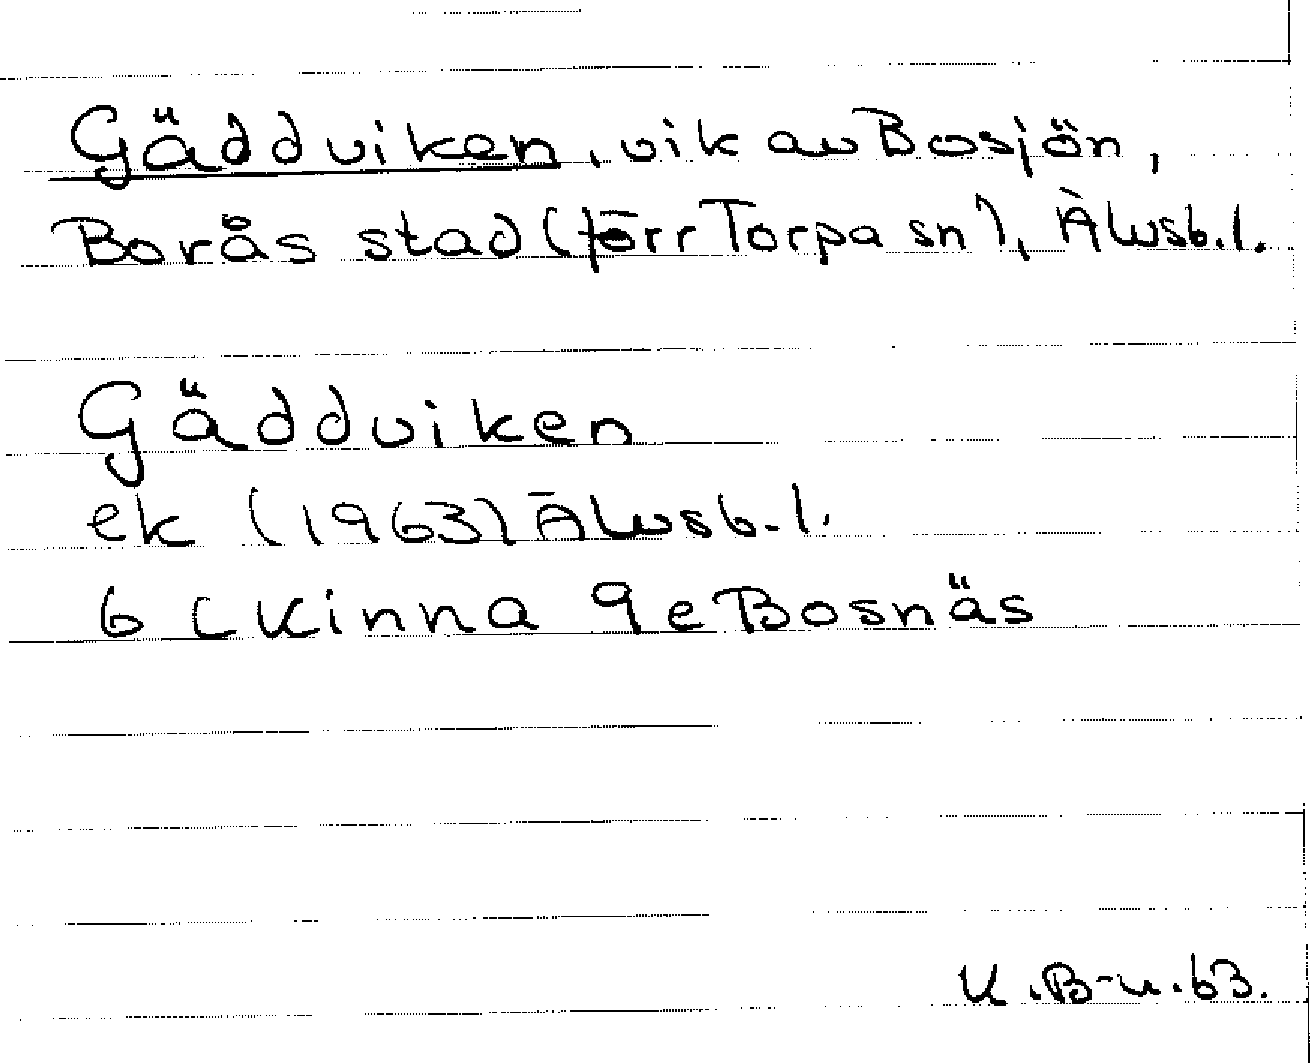 Gäddviken, vik av Bosjön,
Borås stad (förr Torpa sn), Älvsb.l.
Gäddviken
ek (1963) Älvsb.l.
6 C Kinna 9e Bosnäs
K.B-u.63.